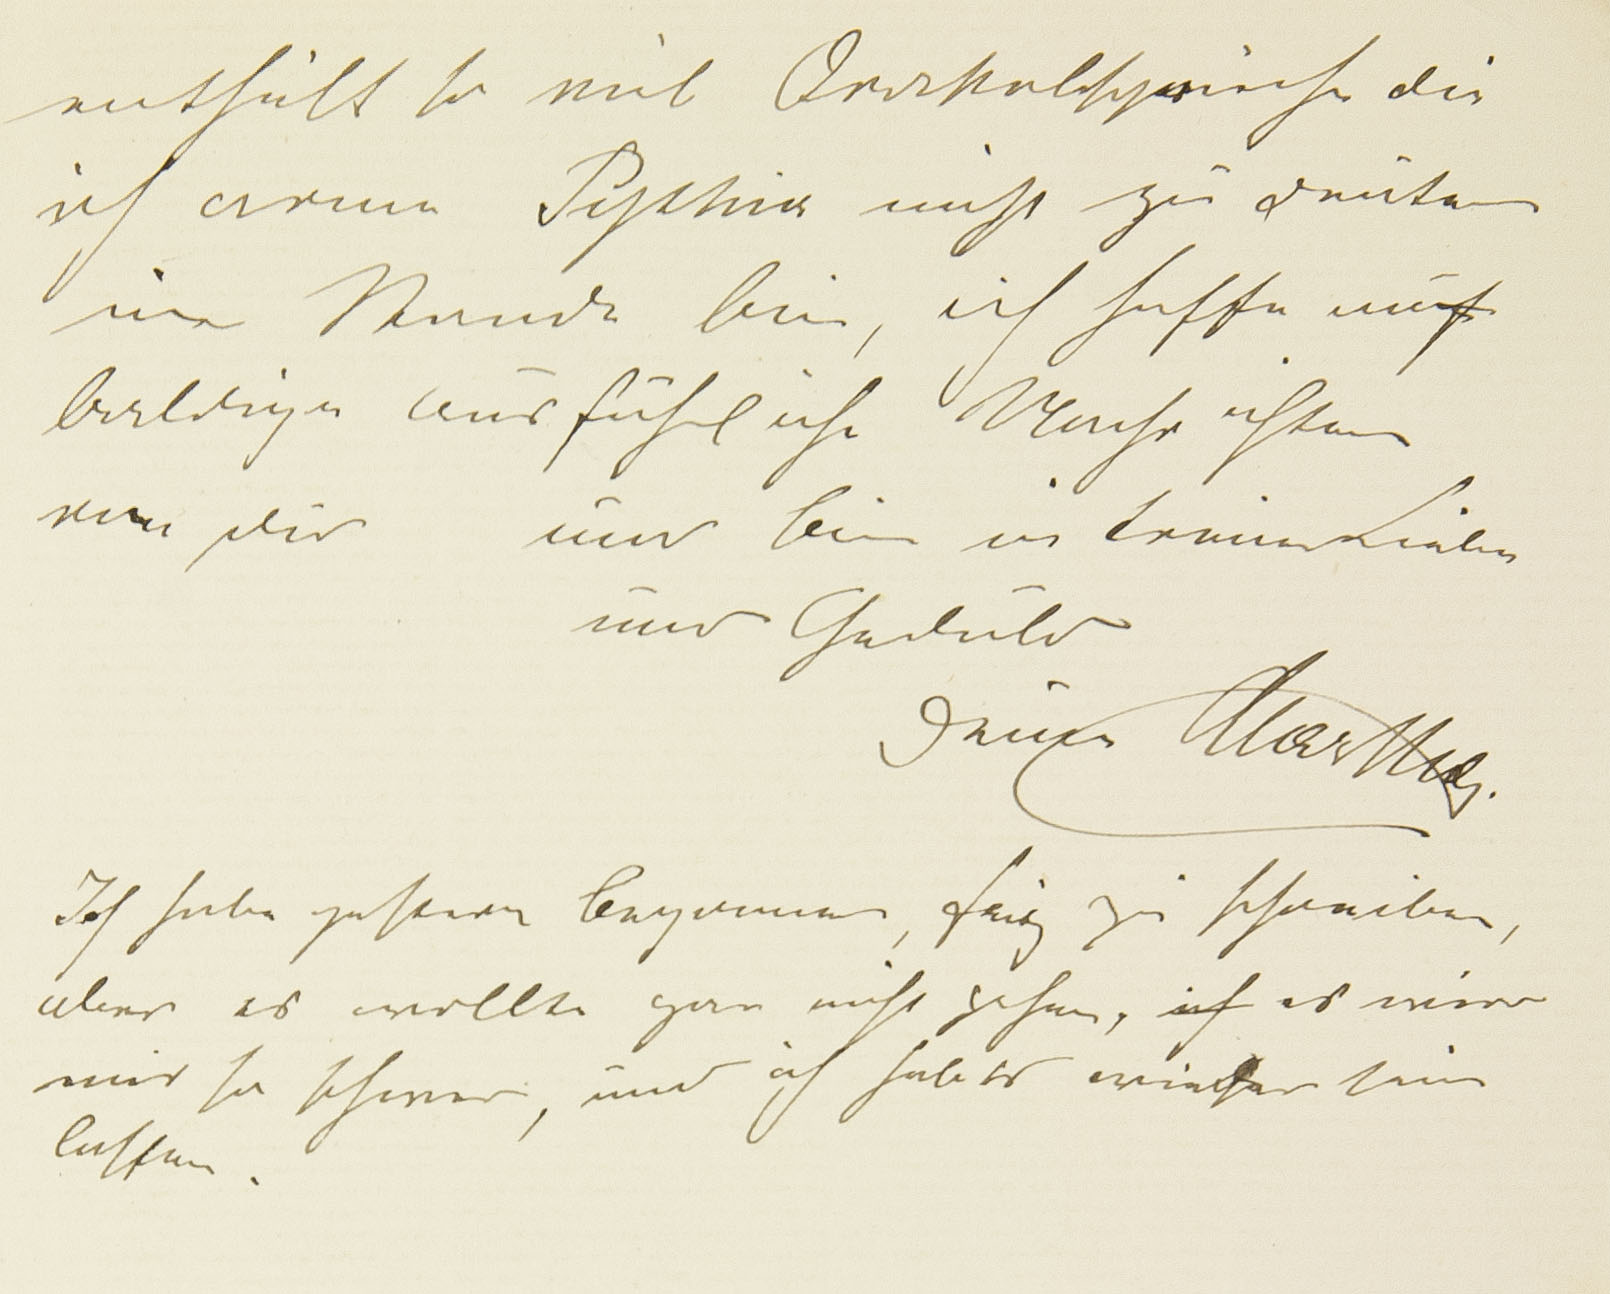 enthält so viel Orakelsprüche die
ich arme Pythia nicht zu deuten
im Stande bin, ich hoffe auf
baldige ausführliche Nachrichten
von dir und bin in treuer Liebe
und Geduld
Deine Martha.
Ich habe gestern begonnen, zu schreiben,
aber es wollte gar nicht gehen, ich es war
mir so schwer, und ich hab es wieder sein
lassen.